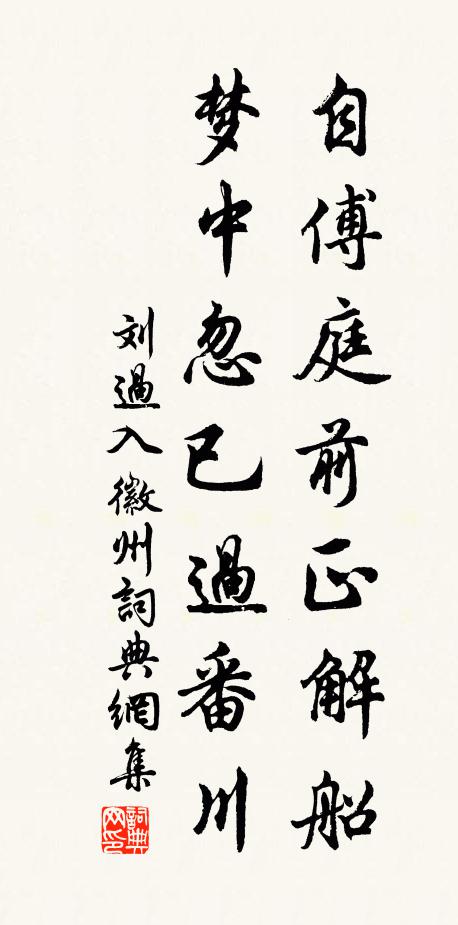 自傅庭前正解船
梦中忽已過番川
刘過入徽州詞典網集
詞典網印